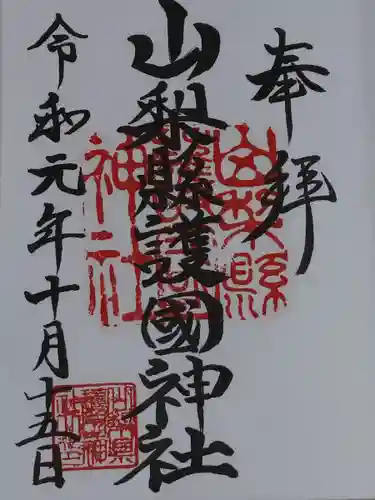 奉拝
山梨縣護國神社
令和元年十月十五日
山梨縣護國神社